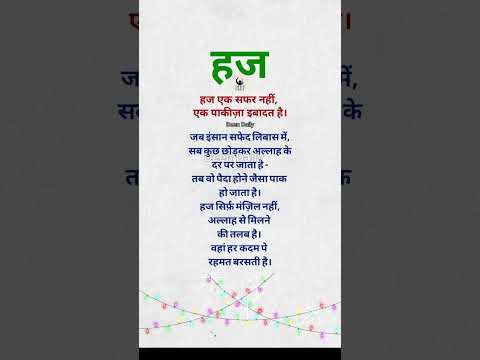 हज
हज एक सफर नहीं,
एक पाकीज़ा इबादत है।
Deen Daily
जब इंसान सफेद लिबास में,
सब कुछ छोड़कर अल्लाह के
दर पर जाता है -
तब वो पैदा होने जैसा पाक
हो जाता है।
हज सिर्फ़ मंज़िल नहीं,
अल्लाह से मिलने
की तलब है।
वहां हर कदम पे
रहमत बरसती है।